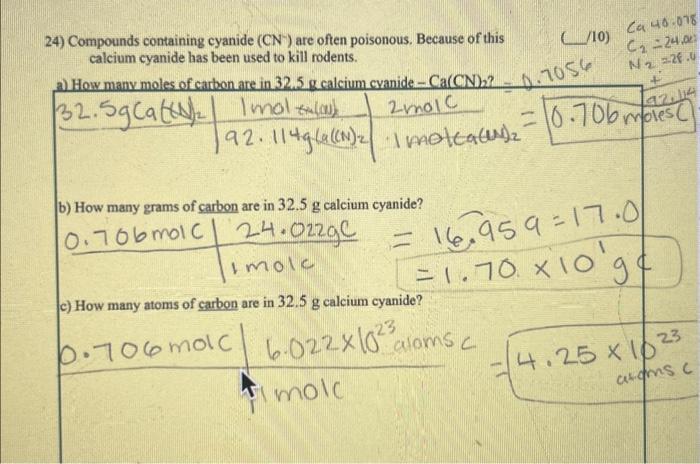 24) Compounds containing cyanide (CN⁻) are often poisonous. Because of this (__/10)
calcium cyanide has been used to kill rodents.
Ca 40.078
C2 = 24.022
N2 = 28.0
+
92.114
a) How many moles of carbon are in 32.5 g calcium cyanide – Ca(CN)2? = 0.7056
32.5g Ca(CN)2 | 1 mol Ca(CN)2 | 2 mol C
92.114g Ca(CN)2 | 1 mol Ca(CN)2 = 0.706 moles C
b) How many grams of carbon are in 32.5 g calcium cyanide?
0.706 mol C | 24.022g C = 16.959 = 17.0
1 mol C = 1.70 x 10¹ g C
c) How many atoms of carbon are in 32.5 g calcium cyanide?
0.706 mol C | 6.022 x 10²³ atoms C = 4.25 x 10²³
1 mol C atoms C